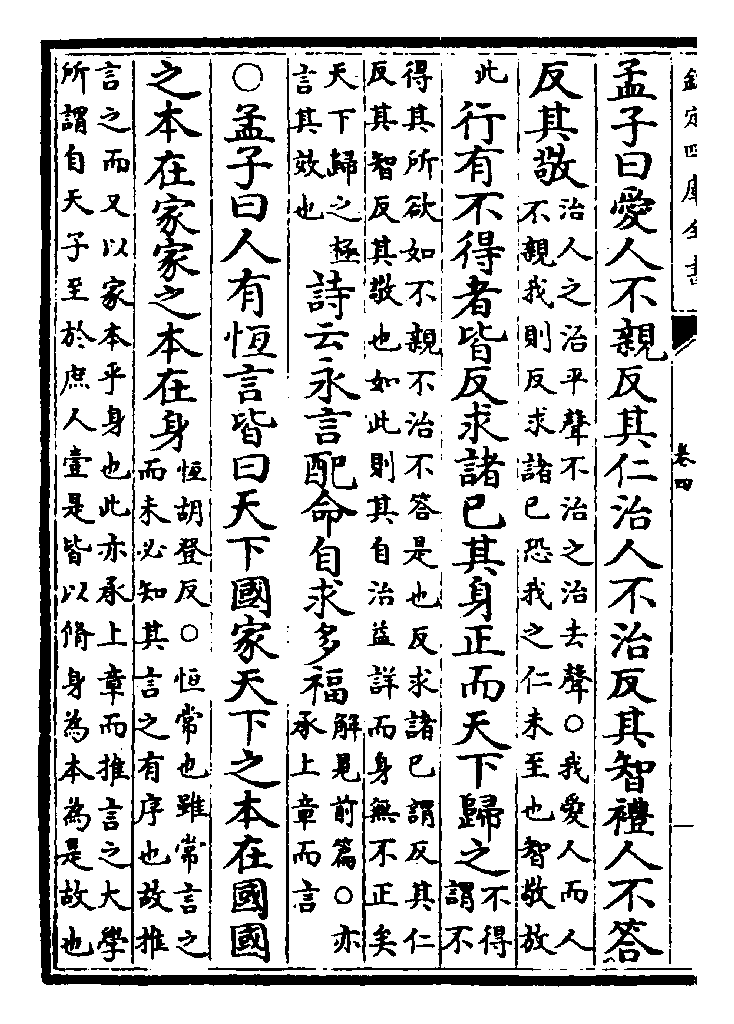 欽定四庫全書
卷四
孟子曰愛人不親反其仁治人不治反其智禮人不答
反其敬
治人之治平聲不治之治去聲○我愛人而人
不親我則反求諸己恐我之仁未至也智敬放
此
行有不得者皆反求諸已其身正而天下歸之
不得
謂不
得其所欲如不親不治不答是也反求諸已謂反其仁
反其智反其敬也如此則其自治益詳而身無不正矣
天下歸之極
言其效也
詩云永言配命自求多福
解見前篇○亦
承上章而言
○孟子曰人有恒言皆曰天下國家天下之本在國國
之本在家家之本在身
恒胡登反○恒常也雖常言之
而未必知其言之有序也故推
言之而又以家本乎身也此亦承上章而推言之大學
所謂自天子至於庶人壹是皆以脩身為本為是故也